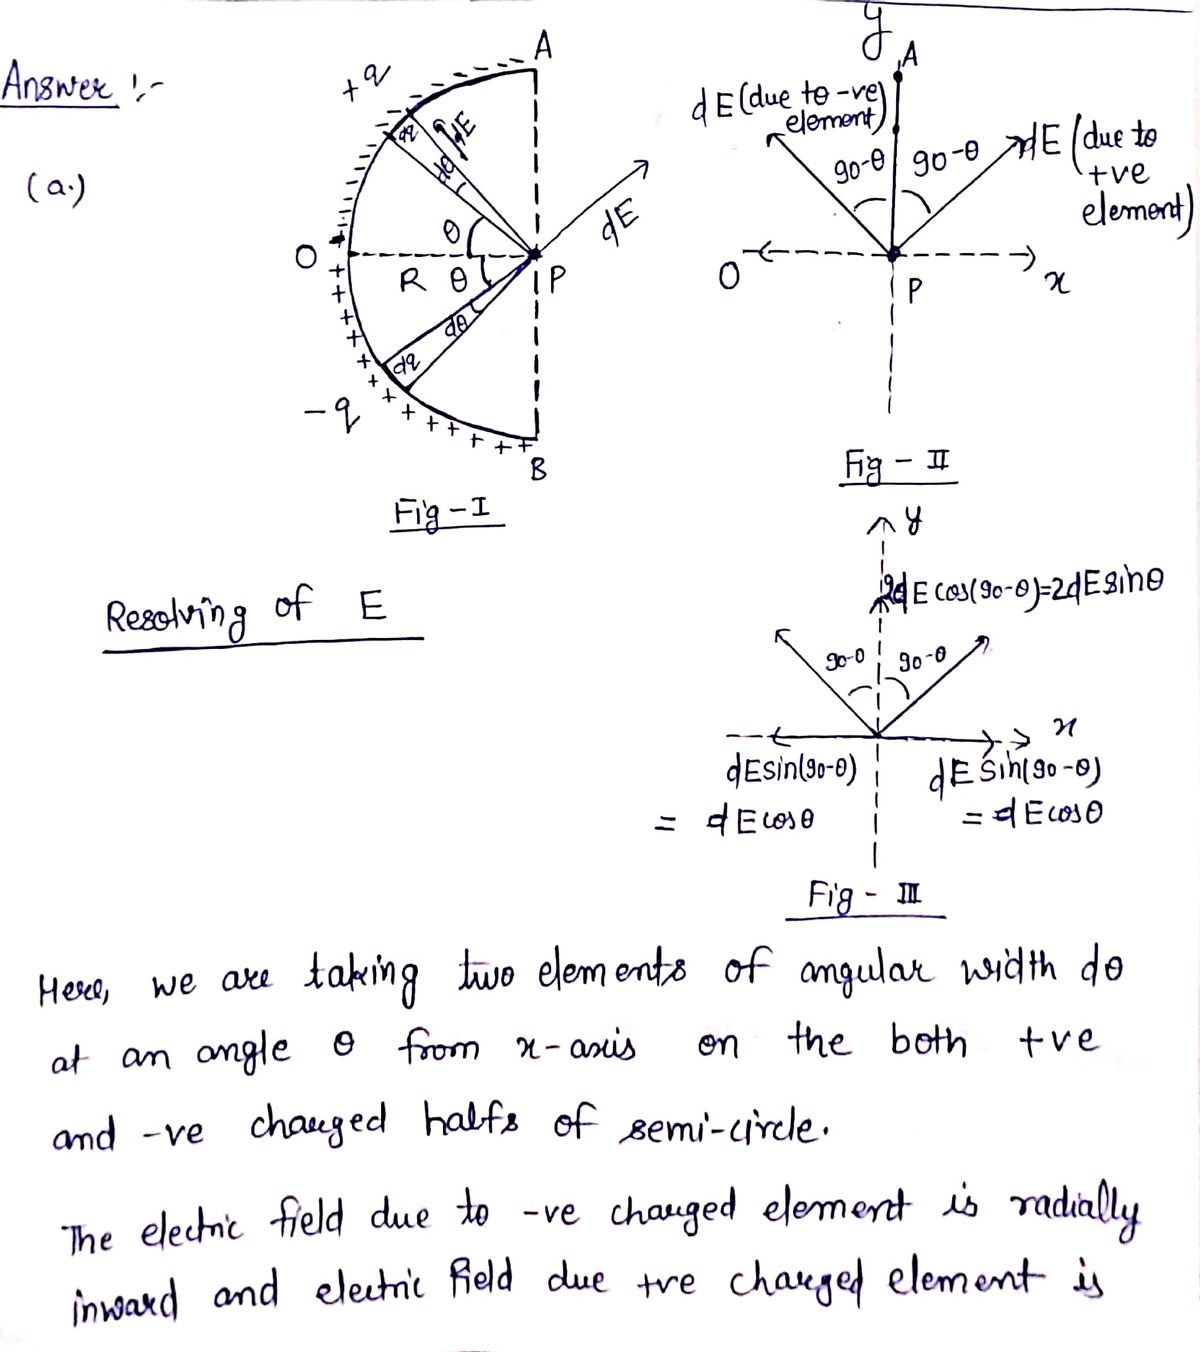 Answer :-
(a.)
+q
A
dq
dθ
dE
dE
θ
O
R
θ
P
dθ
dq
-q
B
Fig - I
y
A
dE (due to -ve element)
90-θ
90-θ
dE (due to +ve element)
O
P
x
Fig - II
Resolving of E
y
2dE cos(90-θ)=2dE sinθ
90-θ
90-θ
x
dE sin(90-θ)
= dE cosθ
dE sin(90-θ)
= dE cosθ
Fig - III
Here, we are taking two elements of angular width dθ
at an angle θ from x-axis on the both +ve
and -ve charged halfs of semi-circle.
The electric field due to -ve charged element is radially
inward and electric field due +ve charged element is